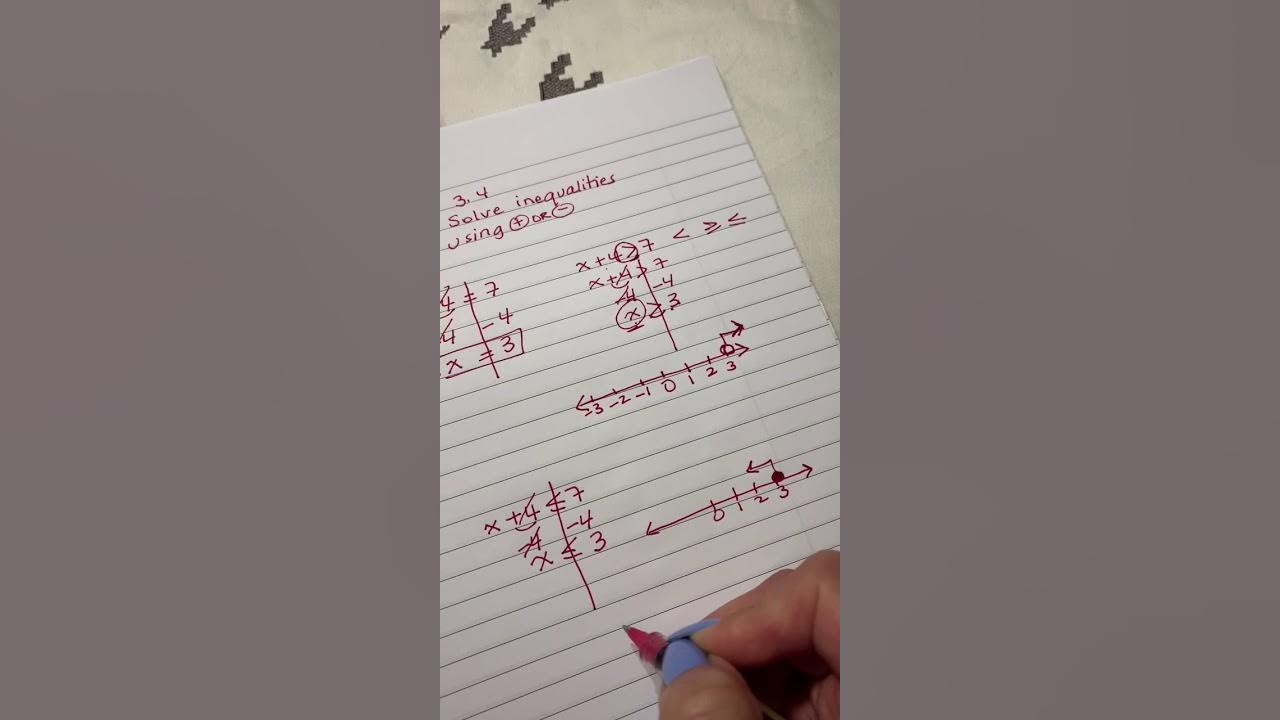 3.4
Solve inequalities
using + OR −
4 = 7
4 −4
x = 3
x + 4 > 7 < ≥ ≤
x + 4 > 7
−4 −4
x < 3
−3 −2 −1 0 1 2 3
x + 4 ≤ 7
−4 −4
x ≤ 3
0 1 2 3